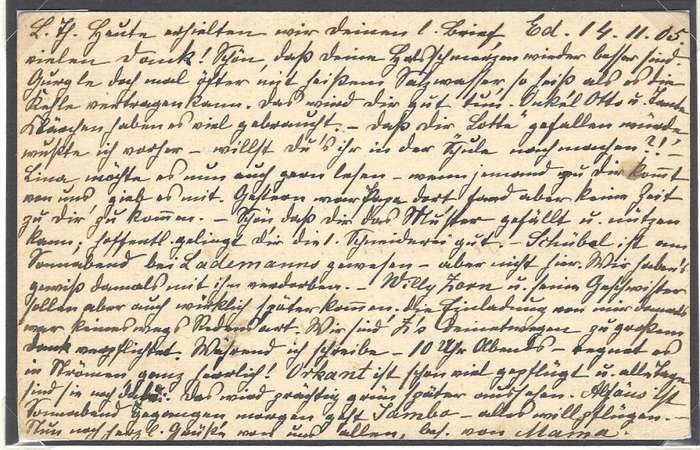 L. Th. Heute erhielten wir deinen l. Brief Ed. 14.11.05
vielen Dank! Schön, daß deine Halsschmerzen wieder besser sind.
Gurgle doch mal öfter mit heißem Salzwasser so heiß als es die
Kehle vertragen kann. Das wird dir gut tun. Onkel Otto u. Tante
Klärchen haben es viel gebraucht. – Daß dir "Lotte" gefallen würde
wußte ich vorher – willst Du's ihr in der Schule nachmachen?!
Lina möchte es nun auch gern lesen – wenn jemand zu Dir kommt
von uns gieb es mit. Gestern war Papa dort fand aber keine Zeit
zu dir zu kommen. – Schön daß dir das Muster gefällt u. nützen
kann; hoffentl. gelingt dir die l. Schneiderei gut. – Schübel ist am
Sonnabend bei Lademanns gewesen – aber nicht hier. Wir haben's
gewiß damals mit ihm verdorben. – Willy Zorn u. seine Geschwister
sollen aber auch wirklich später kommen. Die Einladung von mir damals
war keineswegs Redensart. Wir sind Z's deinetwegen zu großem
Dank verpflichtet. Während ich schreibe – 10 Uhr Abends – regnet es
in Strömen ganz herrlich! Orkant ist schon viel gepflügt u. alle Tage
sind sie noch dabei. Das wird prächtig grün später aussehen. Alfons ist
Sonnabend gegangen morgen geht Sambo – alles will pflügen. –
Nun noch herzl. Grüße von uns allen, bes. von Mama.